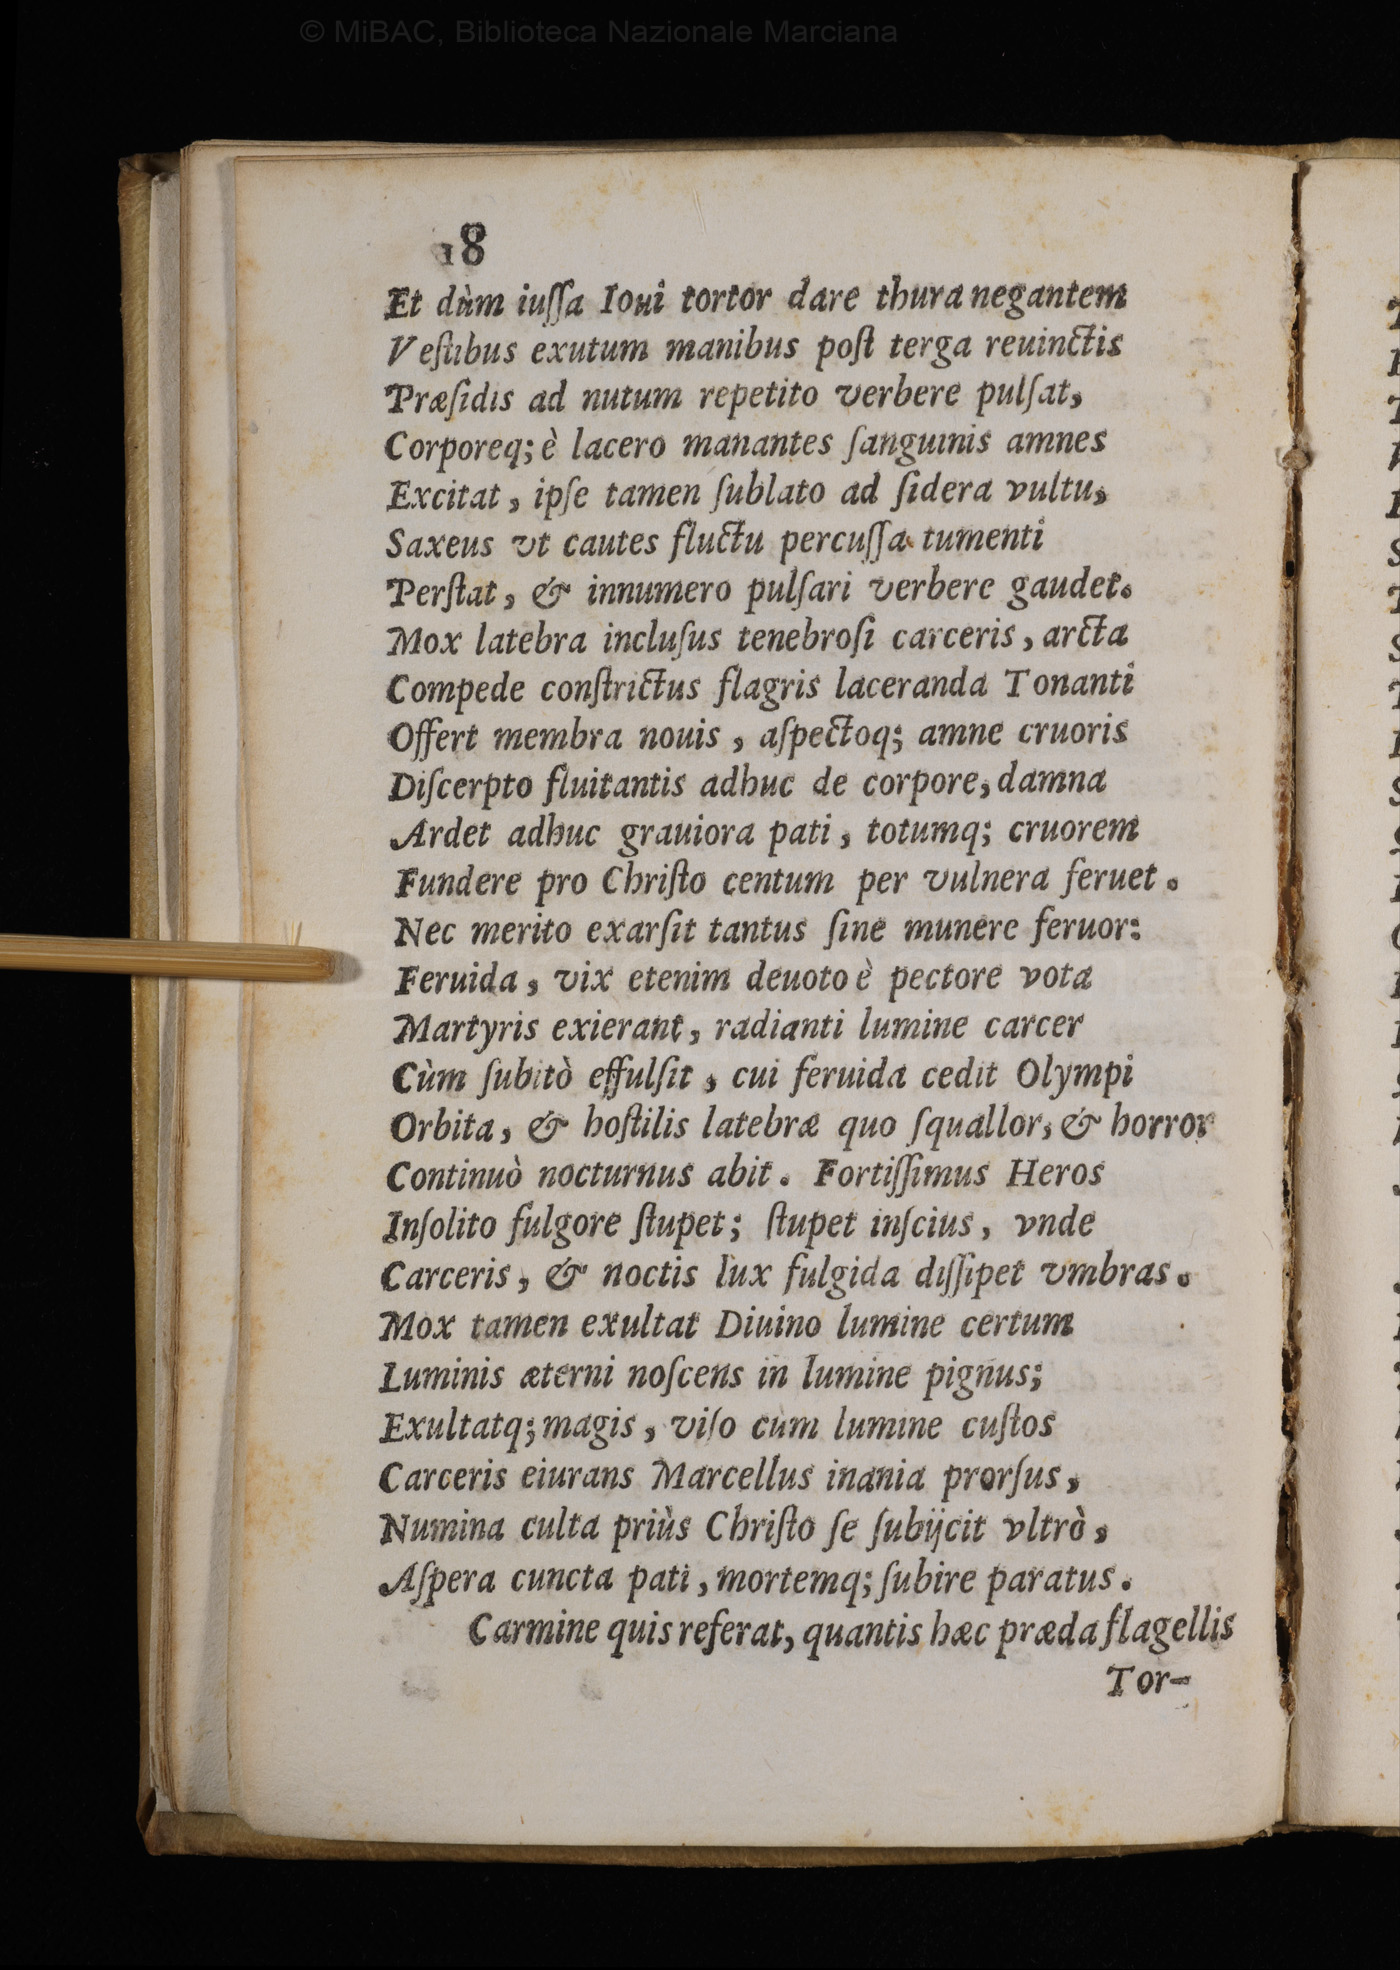 © MiBAC, Biblioteca Nazionale Marciana
18
Et dùm iuſſa Ioui tortor dare thura negantem
Veſtibus exutum manibus poſt terga reuinctis
Præſidis ad nutum repetito verbere pulſat,
Corporeq; è lacero manantes ſanguinis amnes
Excitat, ipſe tamen ſublato ad ſidera vultu,
Saxeus vt cautes fluctu percuſſa tumenti
Perſtat, & innumero pulſari verbere gaudet.
Mox latebra incluſus tenebroſi carceris, arcta
Compede conſtrictus flagris laceranda Tonanti
Offert membra nouis, aſpectoq; amne cruoris
Diſcerpto fluitantis adhuc de corpore, damna
Ardet adhuc grauiora pati, totumq; cruorem
Fundere pro Chriſto centum per vulnera feruet.
Nec merito exarſit tantus ſine munere feruor:
Feruida, vix etenim deuoto è pectore vota
Martyris exierant, radianti lumine carcer
Cùm ſubitò effulſit, cui feruida cedit Olympi
Orbita, & hoſtilis latebræ quo ſquallor, & horror
Continuò nocturnus abit. Fortiſſimus Heros
Inſolito fulgore ſtupet; ſtupet inſcius, vnde
Carceris, & noctis lux fulgida diſſipet vmbras.
Mox tamen exultat Diuino lumine certum
Luminis æterni noſcens in lumine pignus;
Exultatq; magis, viſo cum lumine cuſtos
Carceris eiurans Marcellus inania prorſus,
Numina culta priùs Chriſto ſe ſubijcit vltrò,
Aſpera cuncta pati, mortemq; ſubire paratus.
Carmine quis referat, quantis hæc præda flagellis
Tor-